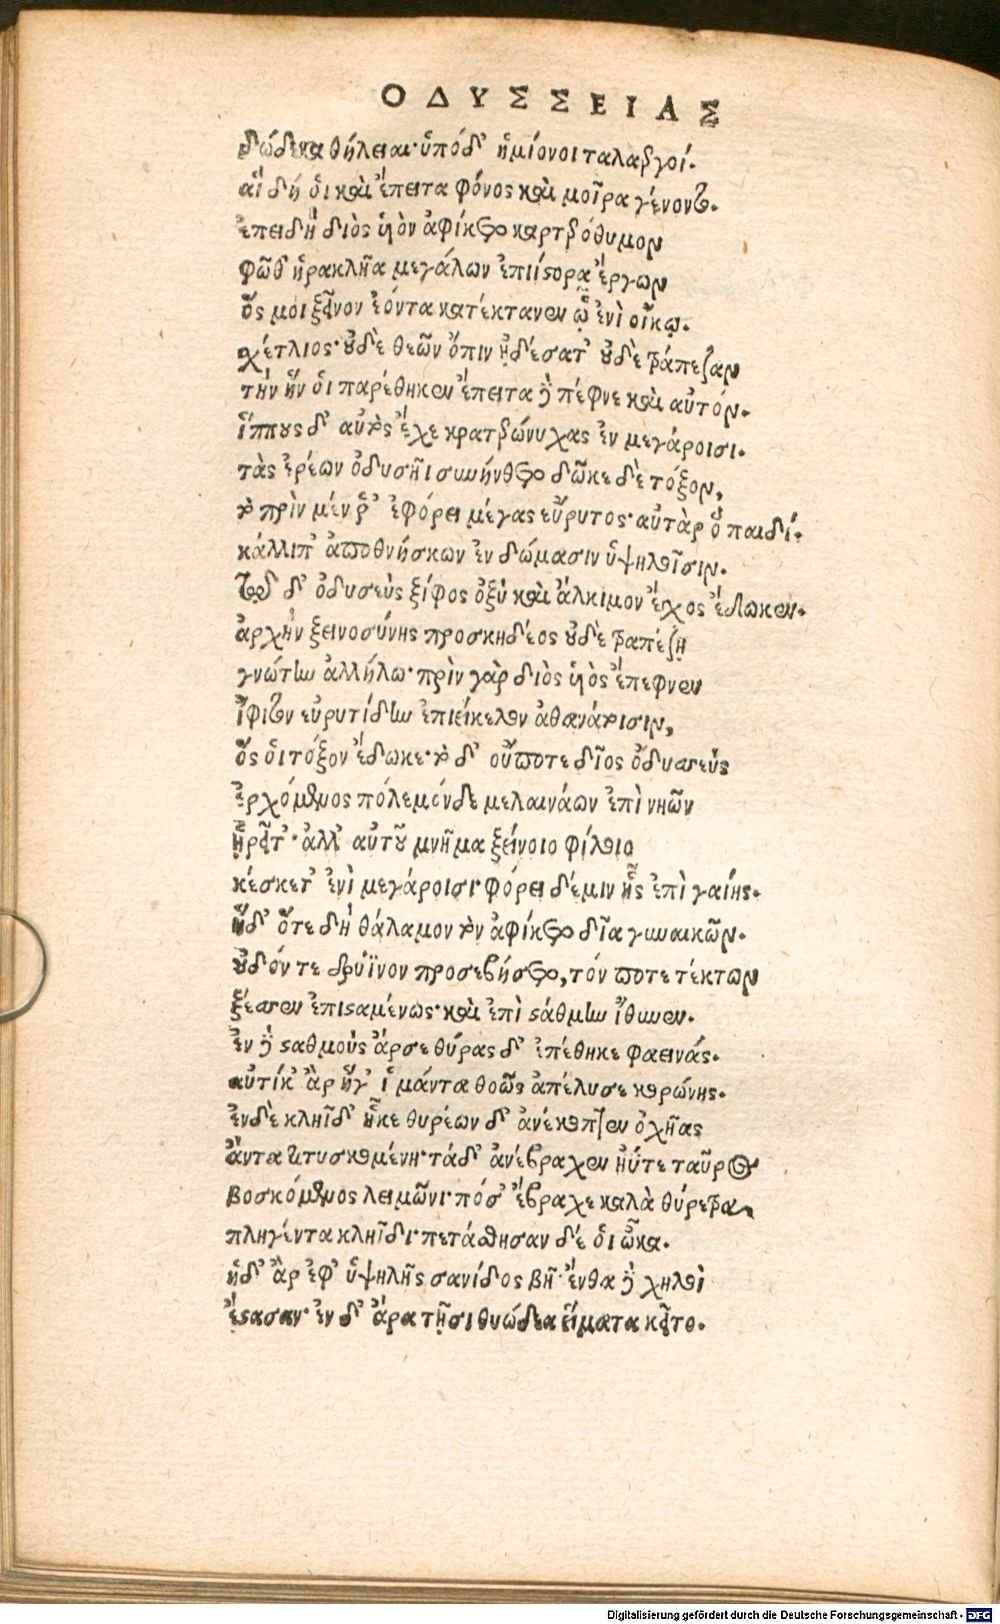 ΟΔΥΣΣΕΙΑΣ
δώδεκα θήλειαι· ὑπό δ' ἡμίονοι ταλαεργοί.
αἳ δή οἱ καὶ ἔπειτα φόνος καὶ μοῖρα γένοντο.
ἐπειδὴ διὸς υἱὸν ἀφίκετο καρτερόθυμον
φῶθ' ἡρακλῆα μεγάλων ἐπιίστορα ἔργων
ὅς μοι ξεῖνον ἐόντα κατέκτανεν ᾧ ἐνὶ οἴκῳ.
σχέτλιος· οὐδὲ θεῶν ὄπιν ᾐδέσατ' οὐδὲ τράπεζαν
τὴν ἥν οἱ παρέθηκεν ἔπειτα δὲ πέφνε καὶ αὐτόν.
ἵππους δ' αὐτὸς ἔχε κρατερώνυχας ἐν μεγάροισι.
τὰς ἐρέων ὀδυσῆι συνήνθετο δῶκε δὲ τόξον,
τὸ πρὶν μέν ῥ' ἐφόρει μέγας εὔρυτος· αὐτὰρ ὃ παιδί.
κάλλιπ' ἀποθνήσκων ἐν δώμασιν ὑψηλοῖσιν.
τῷ δ' ὀδυσεὺς ξίφος ὀξὺ καὶ ἄλκιμον ἔγχος ἔδωκεν.
ἀρχὴν ξεινοσύνης προσκηδέος οὐδὲ τραπέζῃ
γνώτην ἀλλήλω· πρὶν γὰρ διὸς υἱὸς ἔπεφνεν
ἴφιτον εὐρυτίδην ἐπιείκελον ἀθανάτοισιν,
ὅς οἱ τόξον ἔδωκε· τὸ δ' οὔποτε δῖος ὀδυσσεὺς
ἐρχόμενος πόλεμόνδε μελαινάων ἐπὶ νηῶν
ᾑρεῖτ'· ἀλλ' αὐτοῦ μνῆμα ξείνοιο φίλοιο
κέσκετ' ἐνὶ μεγάροισι· φόρει δέ μιν ἧς ἐπὶ γαίης.
ἥδ' ὅτε δὴ θάλαμον τὸν ἀφίκετο δῖα γυναικῶν.
οὐδόν τε δρύϊνον προσεβήσετο, τόν ποτε τέκτων
ξέσσεν ἐπισταμένως· καὶ ἐπὶ στάθμην ἴθυνεν.
ἐν δὲ σταθμοὺς ἄρσε θύρας δ' ἐπέθηκε φαεινάς.
αὐτίκ' ἂρ ἥγ' ἱμάντα θοῶς ἀπέλυσε κορώνης.
ἐν δὲ κληῖδ' ἧκε θυρέων δ' ἀνέκοπτεν ὀχῆας
ἄντα τιτυσκομένη· τὰ δ' ἀνέβραχεν ἠύτε ταῦρος
βοσκόμενος λειμῶνι· τόσ' ἔβραχε καλὰ θύρετρα,
πληγέντα κληῖδι· πετάσθησαν δέ οἱ ὦκα.
ἡ δ' ἂρ ἐφ' ὑψηλῆς σανίδος βῆ· ἔνθα δὲ χηλοὶ
ἕστασαν· ἐν δ' ἄρα τῇσι θυώδεα εἵματα κεῖτο.